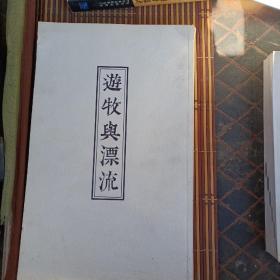 遊牧與漂流